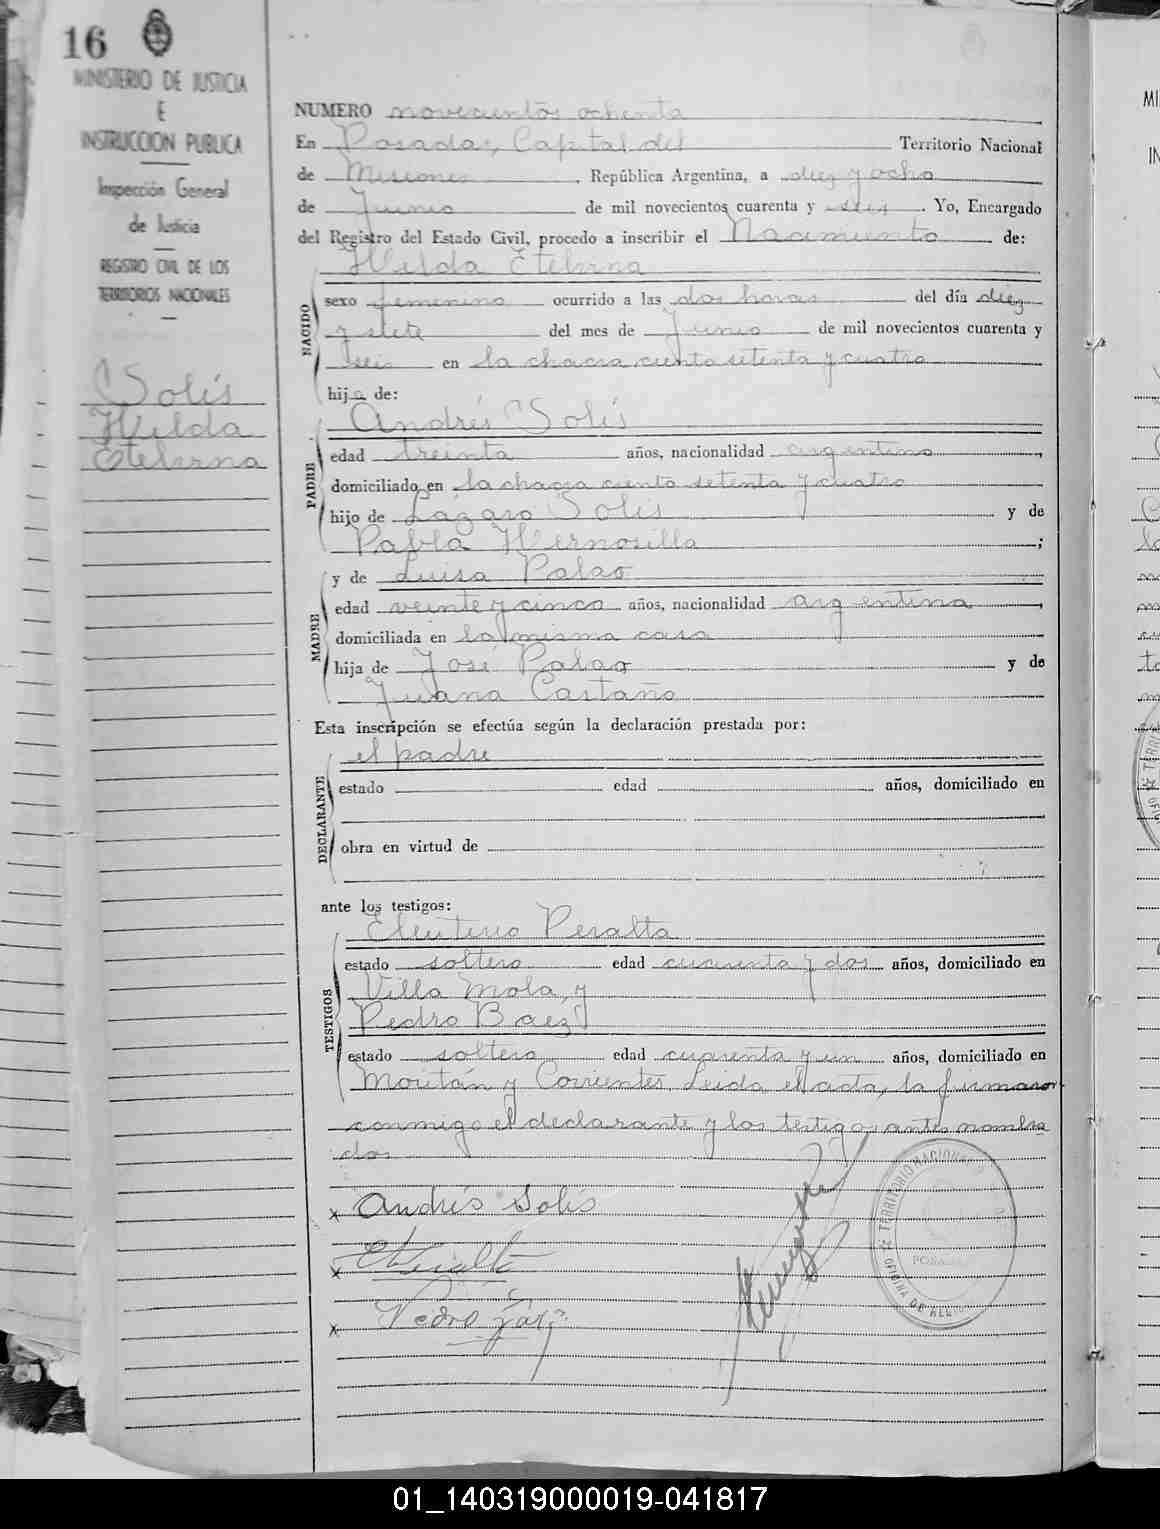 16
MINISTERIO DE JUSTICIA
E
INSTRUCCION PUBLICA
Inspección General
de Justicia
REGISTRO CIVIL DE LOS
TERRITORIOS NACIONALES
Solís
Hilda
Etelvina
NUMERO novecientos ochenta
En Posadas, Capital del Territorio Nacional
de Misiones, República Argentina, a diez y ocho
de Junio de mil novecientos cuarenta y seis. Yo, Encargado
del Registro del Estado Civil, procedo a inscribir el Nacimiento de:
Hilda Etelvina
NACIDO
sexo femenino ocurrido a las dos horas del día diez
y siete del mes de Junio de mil novecientos cuarenta y
seis en la chacra ciento setenta y cuatro
hija de:
Andrés Solís
PADRE
edad treinta años, nacionalidad argentino,
domiciliado en la chacra ciento setenta y cuatro
hijo de Lázaro Solís y de
Pabla Hermosilla;
y de Luisa Palao
MADRE
edad veinte y cinco años, nacionalidad argentina,
domiciliada en la misma casa
hija de José Palao y de
Juana Castaño
Esta inscripción se efectúa según la declaración prestada por:
el padre
DECLARANTE
estado edad años, domiciliado en
obra en virtud de
ante los testigos:
Eleuterio Peralta
TESTIGOS
estado soltero edad cuarenta y dos años, domiciliado en
Villa Mola, y
Pedro Baez
estado soltero edad cuarenta y un años, domiciliado en
y Corrientes. Leida el acta, la firmaron
conmigo el declarante y los testigos antes nombra
dos
x Andrés Solís
x EPeralta
x Pedro
TERRITORIO NACIONAL
POSADAS
OFICINA DE
01_140319000019-041817